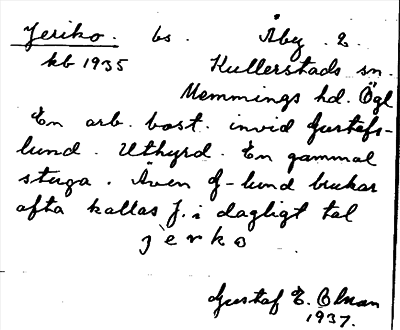 Jeriko. bs. Åby 2.
kb 1935 Kullerstads sn.
Memmings hd. Ögl
En arb. bost. invid Gustafs-
lund. Uthyrd. En gammal
stuga. Även G-lund brukar
ofta kallas J. i dagligt tal
jèrko
Gustaf E. Olsson
1937.